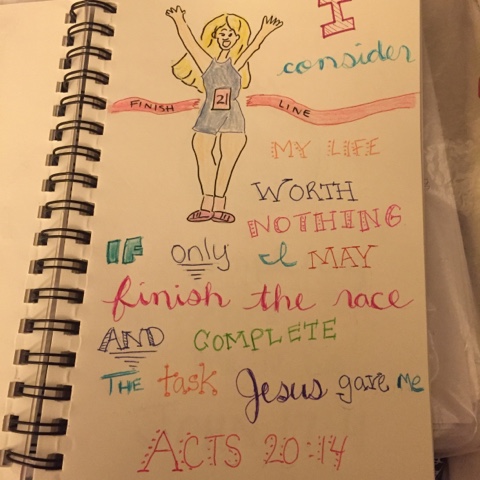 I
consider
21
FINISH LINE
MY LIFE
WORTH
NOTHING
IF only I MAY
finish the race
AND COMPLETE
THE task Jesus gave me
ACTS 20:14